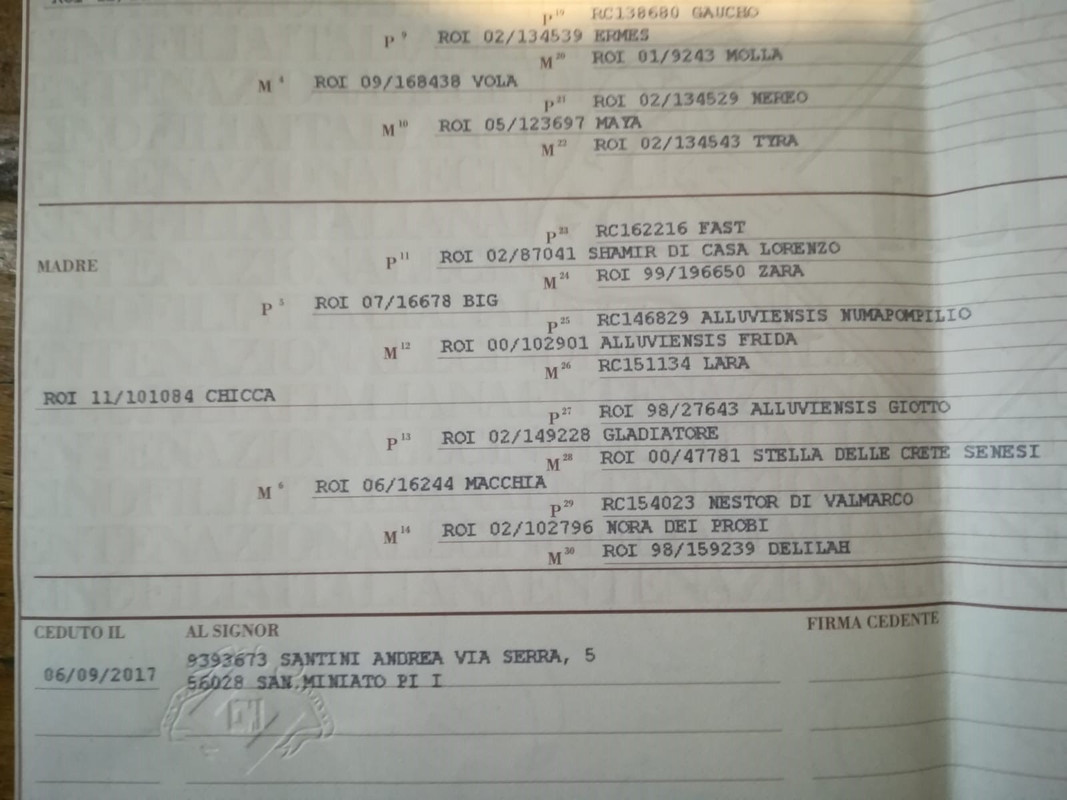 P 19 RC138680 GAUCHO
P 9 ROI 02/134539 ERMES
M 20 ROI 01/9243 MOLLA
M 4 ROI 09/168438 VOLA
P 21 ROI 02/134529 NEREO
M 10 ROI 05/123697 MAYA
M 22 ROI 02/134543 TYRA
P 23 RC162216 FAST
MADRE P 11 ROI 02/87041 SHAMIR DI CASA LORENZO
M 24 ROI 99/196650 ZARA
P 5 ROI 07/16678 BIG
P 25 RC146829 ALLUVIENSIS NUMAPOMPILIO
M 12 ROI 00/102901 ALLUVIENSIS FRIDA
M 26 RC151134 LARA
ROI 11/101084 CHICCA
P 27 ROI 98/27643 ALLUVIENSIS GIOTTO
P 13 ROI 02/149228 GLADIATORE
M 28 ROI 00/47781 STELLA DELLE CRETE SENESI
M 6 ROI 06/16244 MACCHIA
P 29 RC154023 NESTOR DI VALMARCO
M 14 ROI 02/102796 NORA DEI PROBI
M 30 ROI 98/159239 DELILAH
CEDUTO IL AL SIGNOR FIRMA CEDENTE
06/09/2017 9393673 SANTINI ANDREA VIA SERRA, 5
56028 SAN.MINIATO PI I